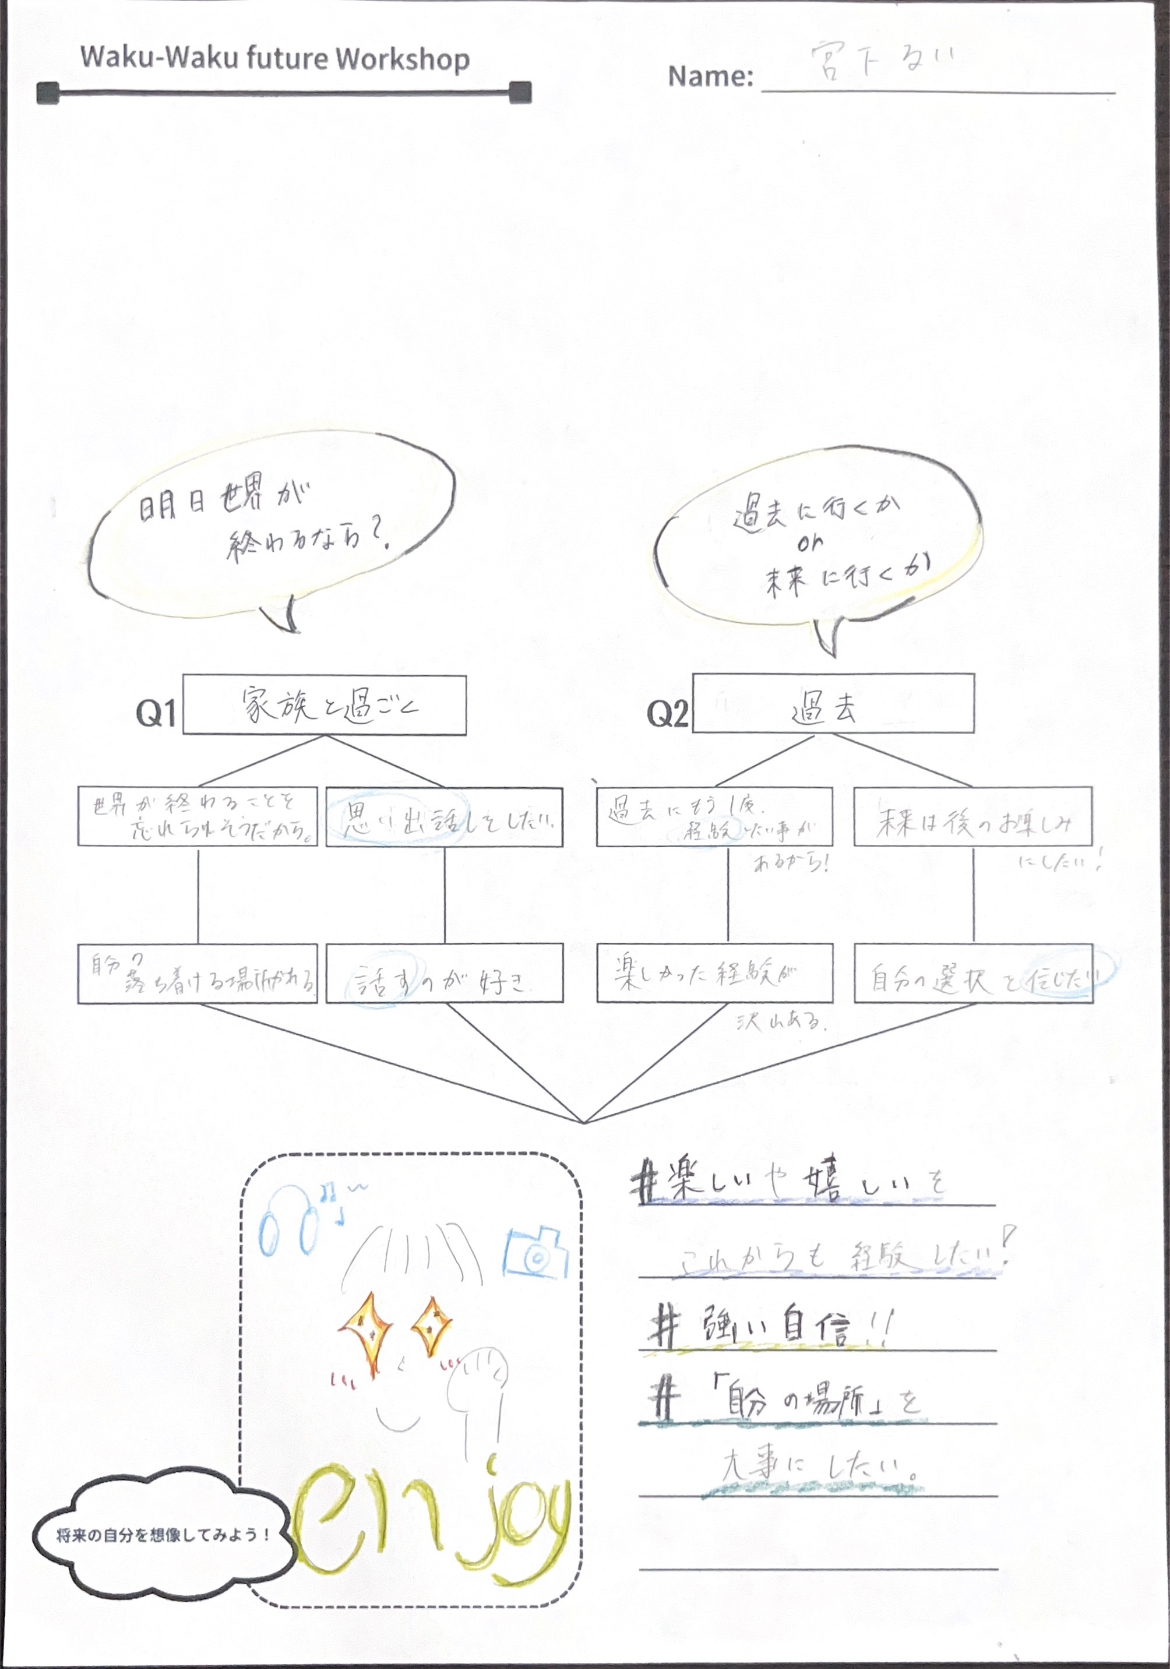 Waku-Waku future Workshop
Name: 宮下 るい
明日世界が
終わるなら?
過去に行くか
or
未来に行くか
Q1 家族と過ごく
Q2 過去
世界が終わることを
忘れられそうだから。
思い出話しをしたい。
過去にもう1度、
経験したい事が
あるから!
未来は後のお楽しみ
にしたい!
自分の
落ち着ける場所がある
話すのが好き
楽しかった経験が
沢山ある。
自分の選択を信じたい
#楽しいや嬉しいを
これからも経験したい!
#強い自信!!
#「自分の場所」を
大事にしたい。
enjoy
将来の自分を想像してみよう!